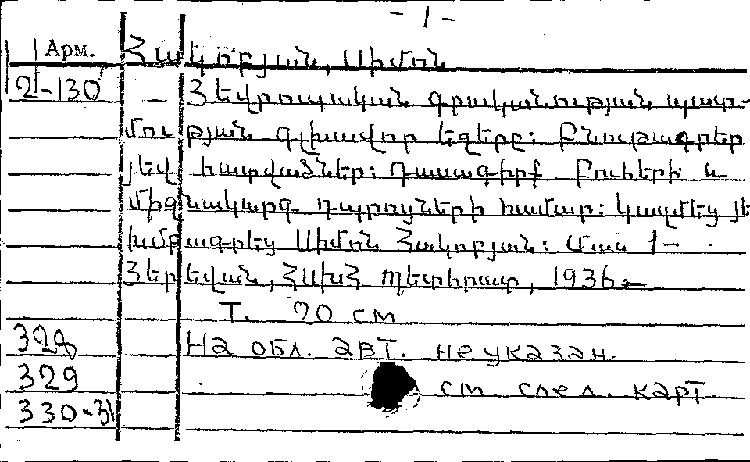 - 1 -
Арм. Հակոբյան, Սիմոն
2-130 — Յեվրոպական գրականության պատ-
մության գլխավոր եզերը: Բնութագրեր
յեվ հատվածներ: Դասագիրք Բուհերի և
միջնակարգ դպրոցների համար: Կազմեց յե
խմբագրեց Սիմոն Հակոբյան: Մաս 1-
Յերեվան, ՀԱԽՀ Պետհրատ, 1936.
Т. 20 см
328 На обл. авт. не указан.
329 см след. карт
330-31